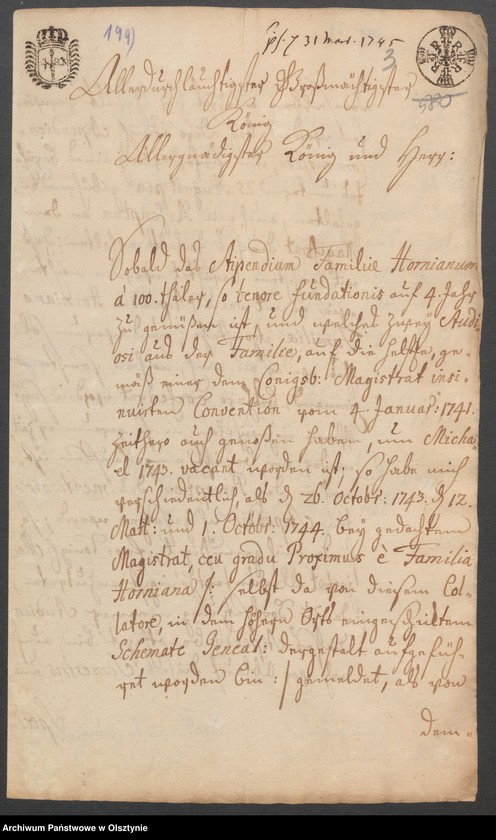 199)
pſ. 31 Mart. 1745
3
580
Allerdurchläuchtigster Großmächtigster
König
Allergnädigster König und Herr:
Sobald das Stipendium Familiæ Hornianum
â 100. thaler, so tenore fundationis auf 4. Jahr
zu genüßen ist, und welches zwey Studi-
osi aus der Familie, auf die helffte, ge-
mäß einer dem Königsb: Magistrat insi-
nuirten Convention vom 4. Januar: 1741.
zeithero auch genoßen haben, um Micha-
el 1743. vacant worden ist; so habe mich
verschiedentlich, als d 26. Octobr: 1743. d 12.
Mart: und 1. Octobr: 1744. bey gedachtem
Magistrat, ceu gradu Proximus è Familia
Horniana /: selbst da von diesem Col-
latore, in dem höhern Orts eingeschickten
Schemate Geneal: dergestalt aufgefüh-
ret worden bin :/ gemeldet, als von
dem-
Archiwum Państwowe w Olsztynie